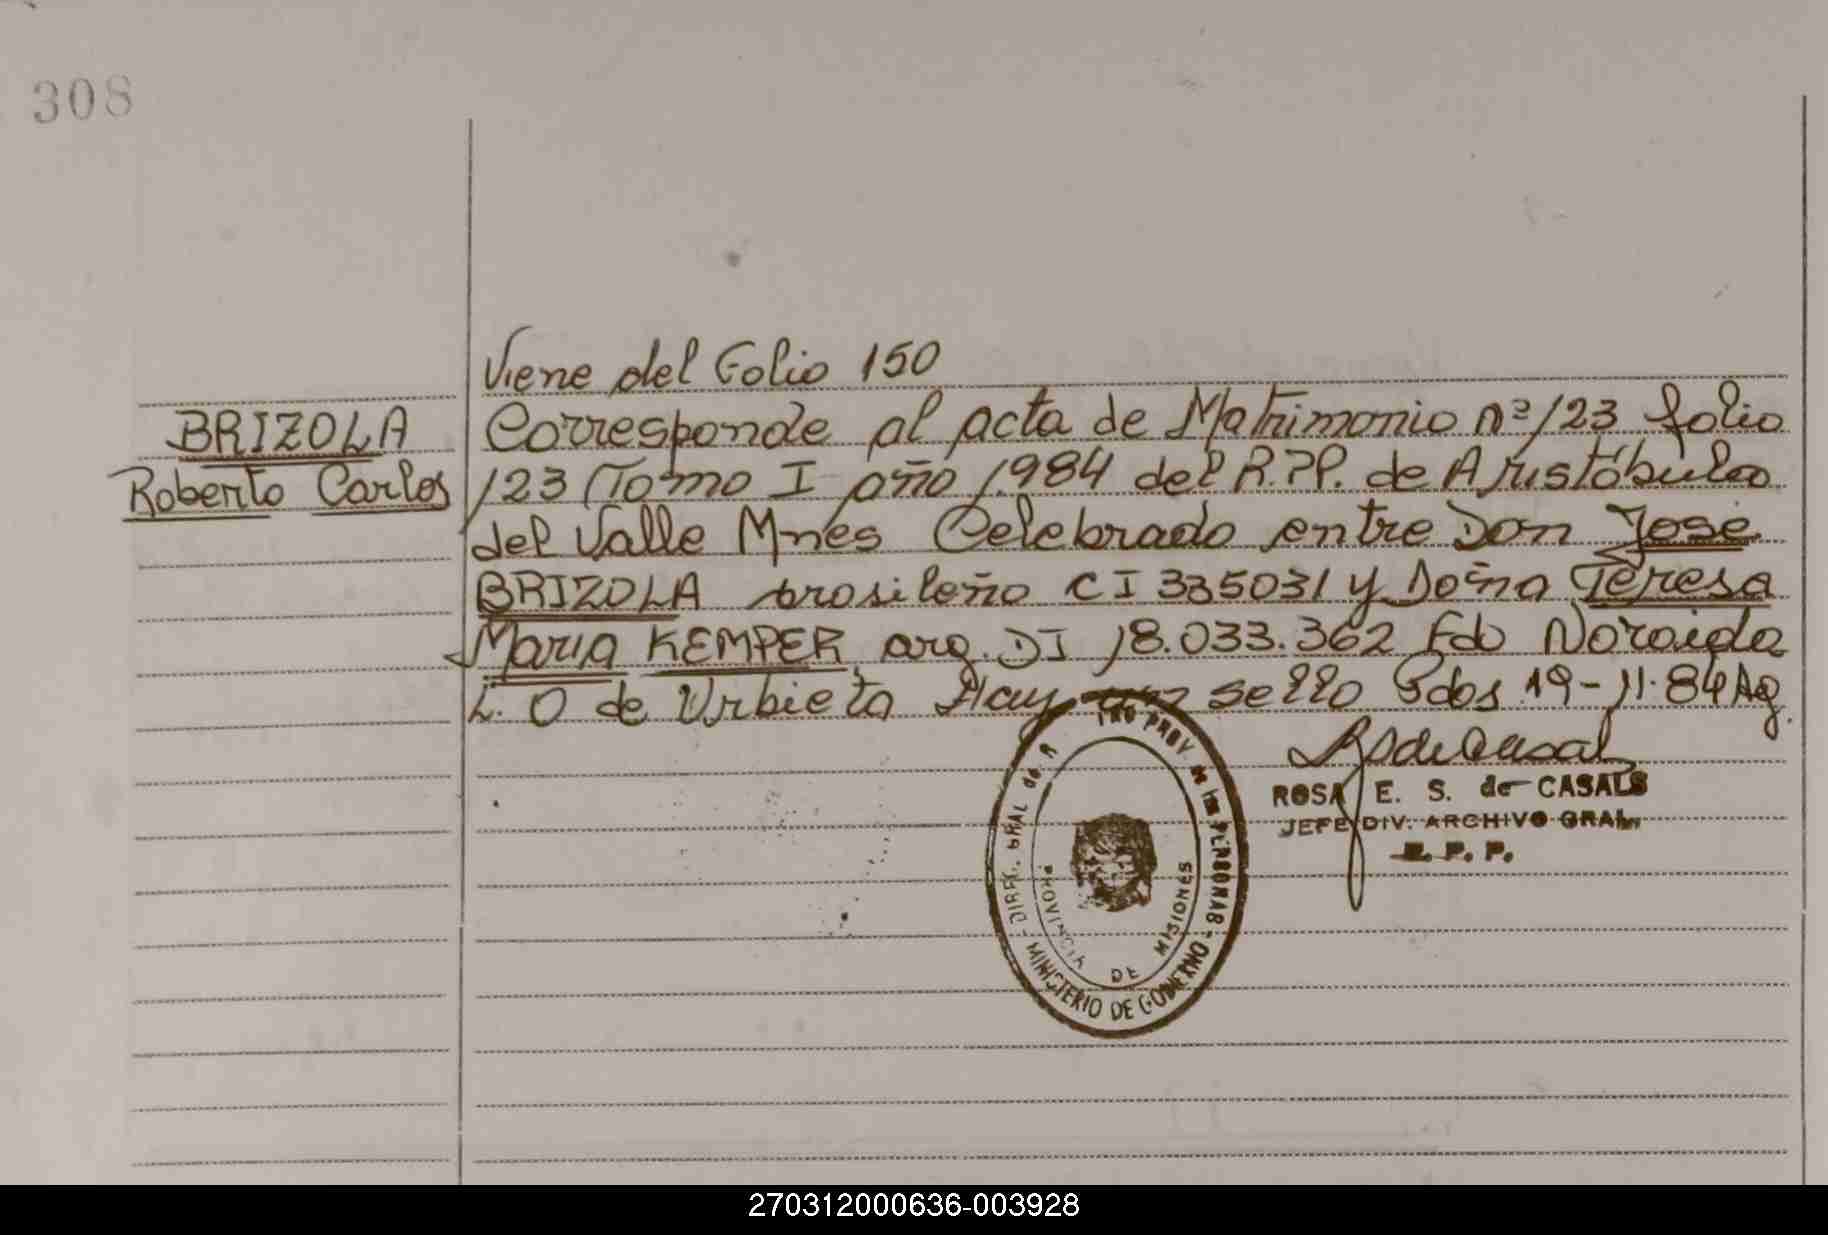 308
Viene del Folio 150
BRIZOLA
Roberto Carlos
Corresponde al acta de Matrimonio nº 123 folio
123 Tomo I año 1984 del R.P.P. de Aristóbulo
del Valle Mnes Celebrado entre Don José
BRIZOLA brasileño CI 335031 y Doña Teresa
Maria KEMPER, arg. DI 18.033.362 Fdo Noraida
L. O de Urbieta Hay un sello Pdos 19-11-84 Ag.
ROSA E. S. de CASALS
JEFE DIV. ARCHIVO GRAL.
R. P. P.
DIREC. GRAL de R PROV de las PERSONAS
MINISTERIO DE GOBIERNO
PROVINCIA DE MISIONES
270312000636-003928